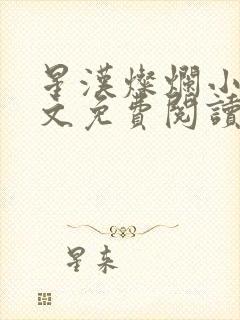 星漢燦爛小
文免費閱讀
星來